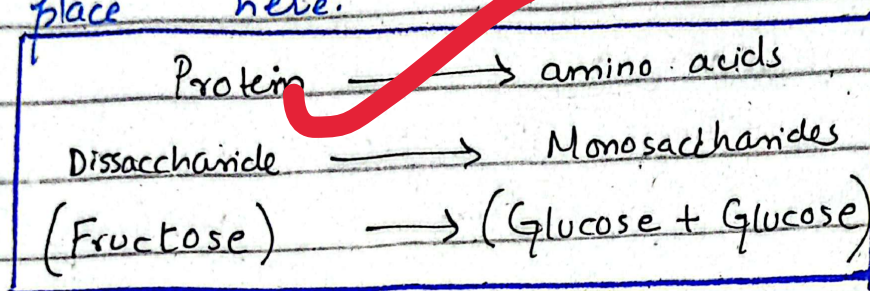 place here.
Protein → amino acids
Dissaccharide → Monosaccharides
(Fructose) → (Glucose + Glucose)